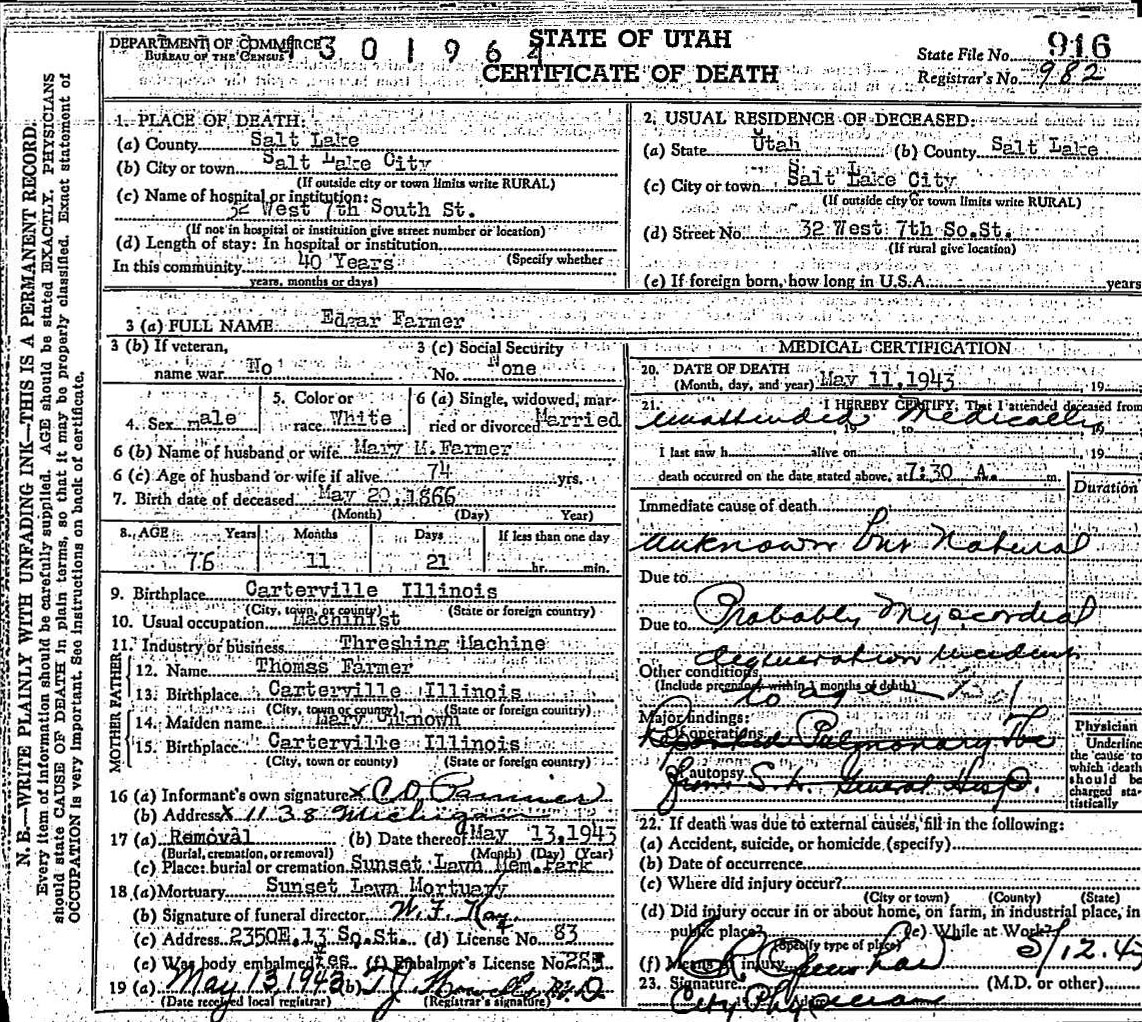 DEPARTMENT OF COMMERCE
BUREAU OF THE CENSUS
4301964
STATE OF UTAH
CERTIFICATE OF DEATH
State File No. 916
Registrar's No. 982
N. B.—WRITE PLAINLY WITH UNFADING INK—THIS IS A PERMANENT RECORD.
Every item of information should be carefully supplied. AGE should be stated EXACTLY. PHYSICIANS
should state CAUSE OF DEATH in plain terms, so that it may be properly classified. Exact statement of
OCCUPATION is very important. See instructions on back of certificate.
1. PLACE OF DEATH:
(a) County Salt Lake
(b) City or town Salt Lake City
(If outside city or town limits write RURAL)
(c) Name of hospital or institution:
32 West 7th South St.
(If not in hospital or institution give street number or location)
(d) Length of stay: In hospital or institution
(Specify whether
In this community 40 Years
years, months or days)
2. USUAL RESIDENCE OF DECEASED:
(a) State Utah (b) County Salt Lake
(c) City or town Salt Lake City
(If outside city or town limits write RURAL)
(d) Street No. 32 West 7th So.St.
(If rural give location)
(e) If foreign born, how long in U.S.A. years
3 (a) FULL NAME Edgar Farmer
3 (b) If veteran,
name war No
3 (c) Social Security
No. None
4. Sex male
5. Color or
race White
6 (a) Single, widowed, mar-
ried or divorced Married
6 (b) Name of husband or wife Mary M.Farmer
6 (c) Age of husband or wife if alive 74 yrs.
7. Birth date of deceased May 20,1866
(Month) (Day) Year)
8. AGE Years Months Days If less than one day
76 11 21 hr. min.
9. Birthplace Carterville Illinois
(City, town, or county) (State or foreign country)
10. Usual occupation Machinist
11. Industry or business Threshing Machine
FATHER
12. Name Thomas Farmer
13. Birthplace Carterville Illinois
(City, town or county) (State or foreign country)
MOTHER
14. Maiden name Mary Unknown
15. Birthplace Carterville Illinois
(City, town or county) (State or foreign country)
16 (a) Informant's own signature x C D Farmer
(b) Address x 1138 Michigan
17 (a) Removal (b) Date thereof May 13,1943
(Burial, cremation, or removal) (Month) (Day) (Year)
(c) Place: burial or cremation Sunset Lawn Mem.Park
18 (a) Mortuary Sunset Lawn Mortuary
(b) Signature of funeral director W. F. Kay
(c) Address 2350E.13 So.St. (d) License No. 83
(e) Was body embalmed Yes (f) Embalmer's License No. 285
19 (a) May 13 1943 (b) T J Howells M.D
(Date received local registrar) (Registrar's signature)
MEDICAL CERTIFICATION
20. DATE OF DEATH
(Month, day, and year) May 11,1943, 19
21. I HEREBY CERTIFY, That I attended deceased from
unattended Medically
19 to 19
I last saw h alive on , 19
death occurred on the date stated above, at 7:30 A. m.
Duration
Immediate cause of death
unknown but Natural
Due to
Due to Probably Myocordial
degeneration incident
Other conditions
(Include pregnancy within 3 months of death)
to age
Major findings:
Of operations
Reported Pulmonary Tbc
Of autopsy
from S. L. General Hosp.
Physician
Underline
the cause to
which death
should be
charged sta-
tistically
22. If death was due to external causes, fill in the following:
(a) Accident, suicide, or homicide (specify)
(b) Date of occurrence
(c) Where did injury occur?
(City or town) (County) (State)
(d) Did injury occur in or about home, on farm, in industrial place, in
public place? (e) While at Work?
(Specify type of place)
(f) Means of injury 5/12.43
23. Signature (M.D. or other)
City Physician